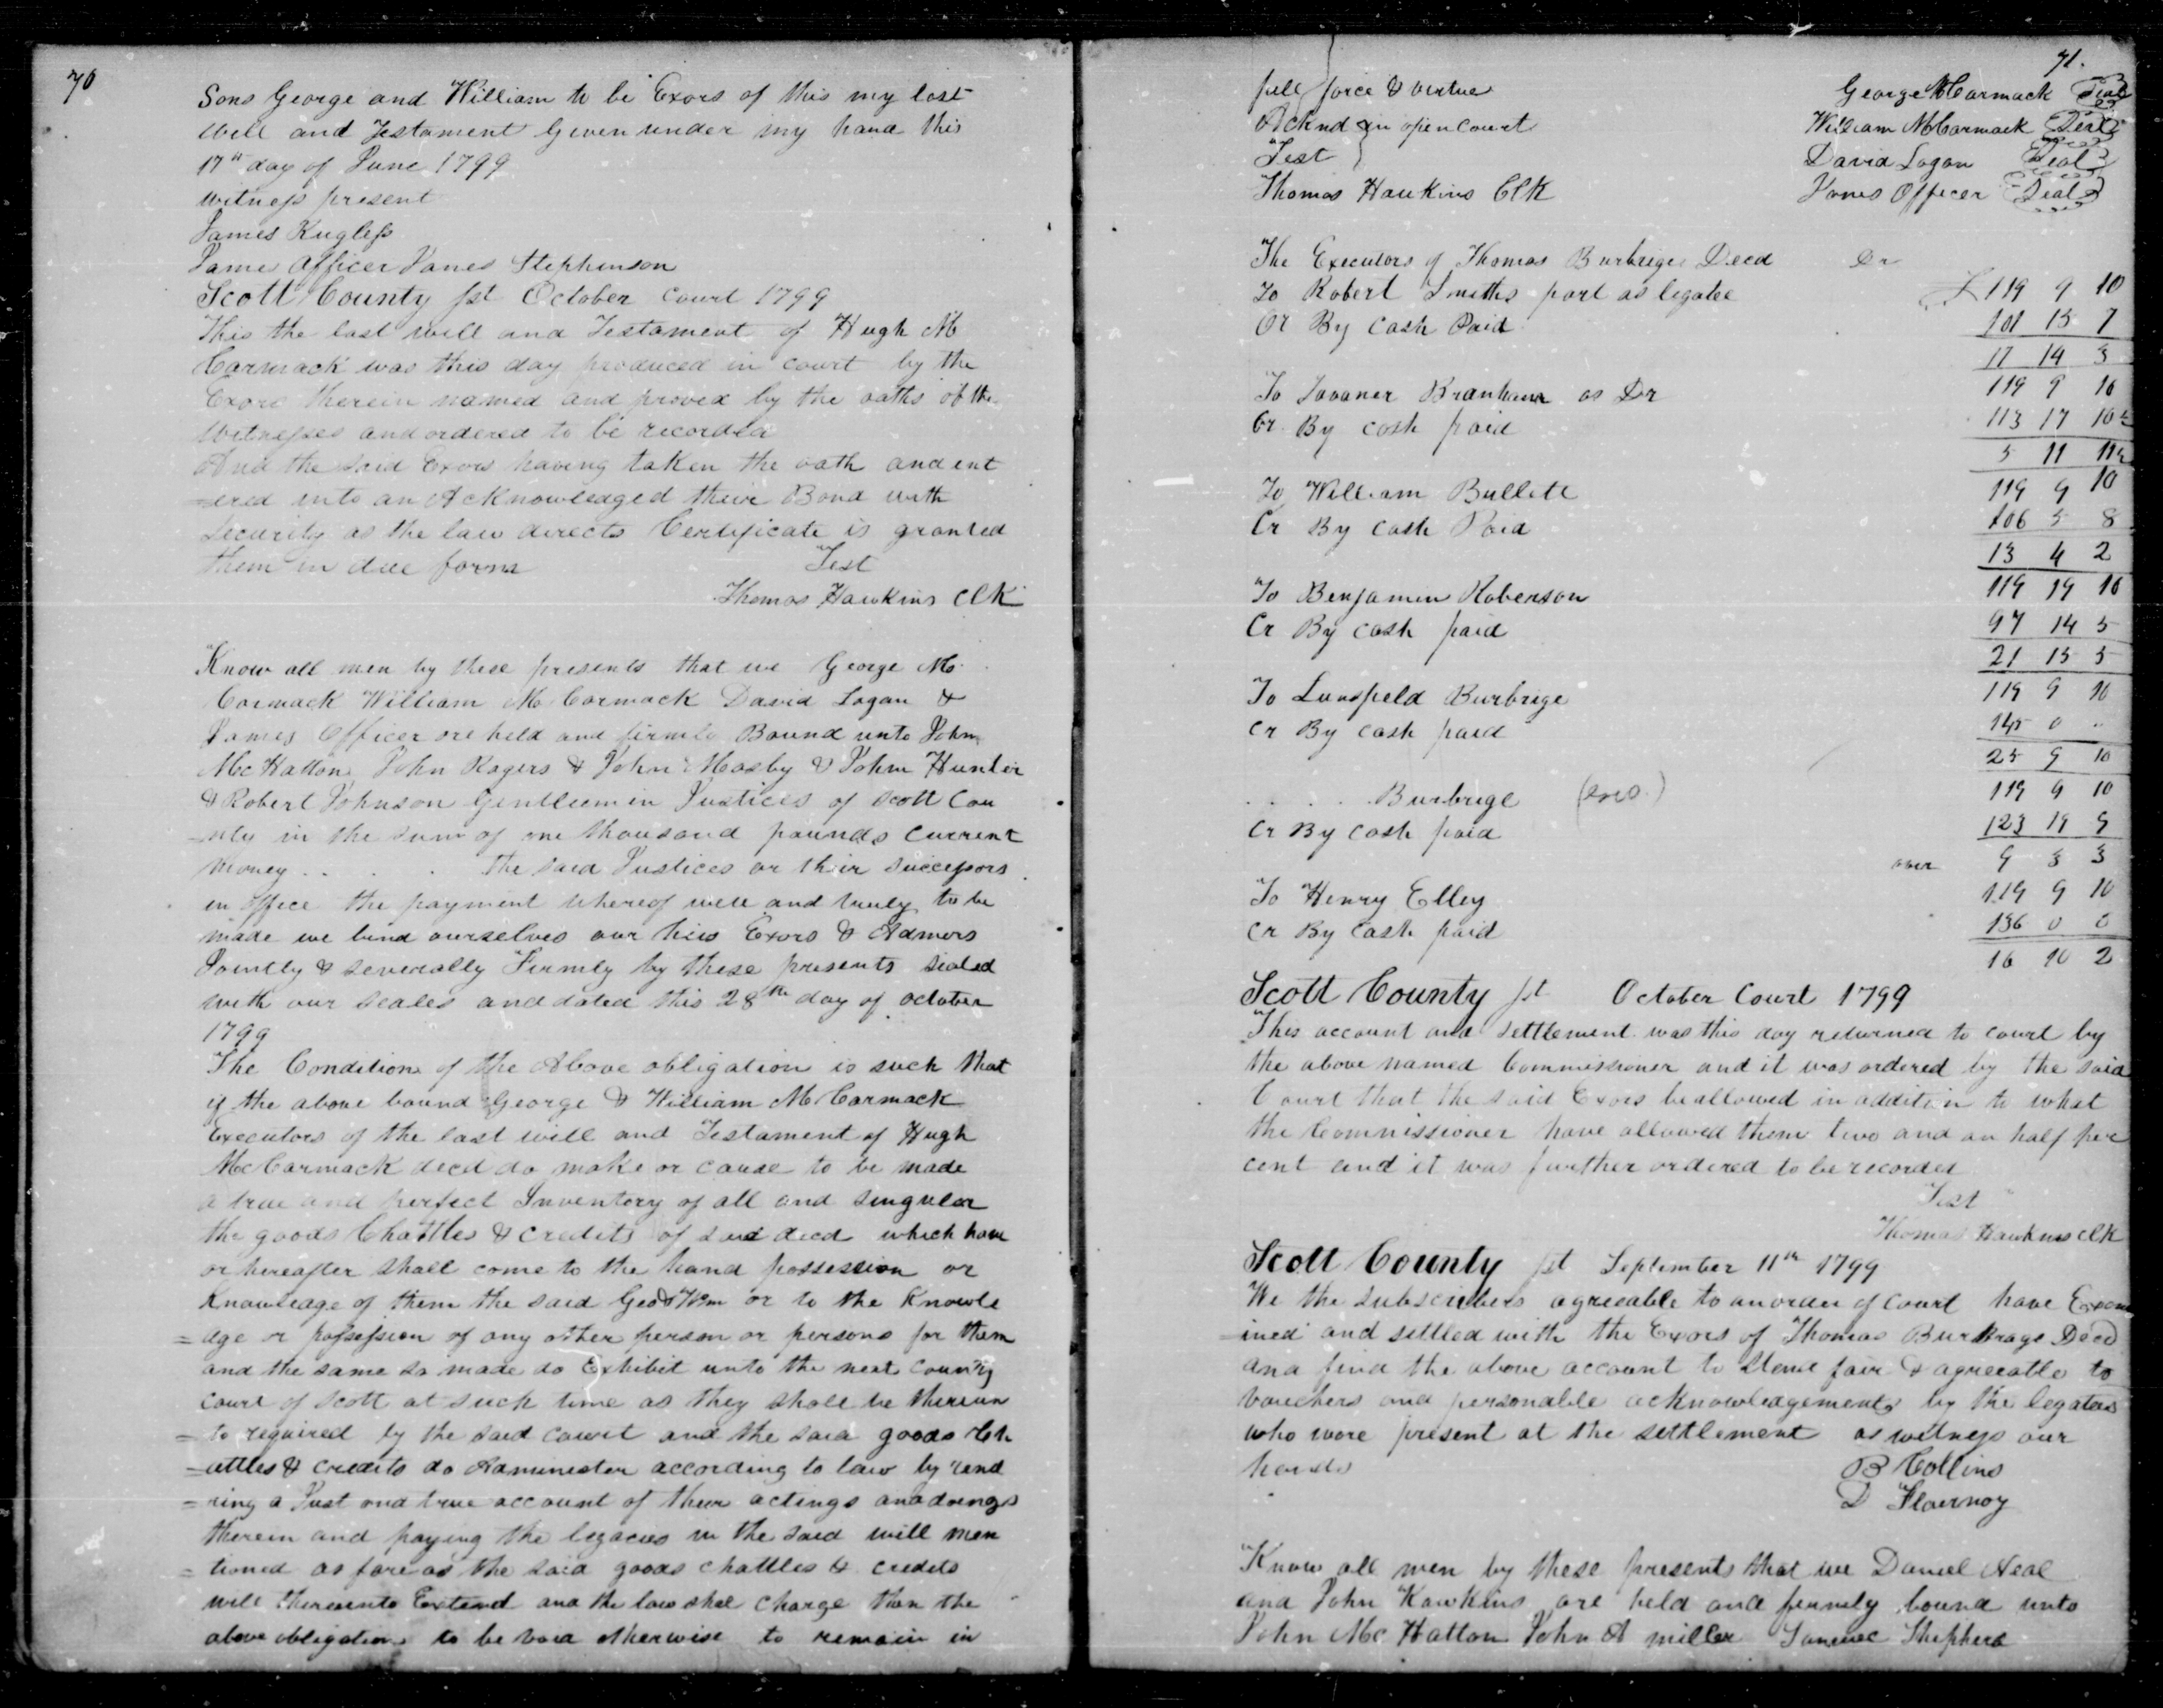 70
Sons George and William to be Exors of this my last
will and Testament Given under my hand this
17th day of June 1799
witness present
James Kugless
Jame Officer James Stephenson
Scott County sst October court 1799
This the last will and Testament of Hugh Mc
Carmack was this day produced in court by the
Exors therein named and proved by the oaths of the
Witnesses and ordered to be recorded
And the said Exors having taken the oath and ent
=ered into an Acknowledged their Bond with
security as the law directs Certificate is granted
them in due form Test
Thomas Hawkins Clk
Know all men by these presents that we George Mc
Cormack William Mc Cormack David Logan &
James Officer are held and firmly Bound unto John
McHatton John Rogers & John Mosby & John Hunter
& Robert Johnson Gentleemen Justices of Scott Cou
-nty in the sum of one thousand pounds current
money . . . . the said Justices or their successors
in office the payment whereof well and truly to be
made we bind ourselves our heis Exors & Admors
Jointly & severally Firmly by these presents sealed
with our seales and dated this 28th day of october
1799
The Condition of the Above obligation is such that
if the above bound George & William McCarmack
Executors of the last will and Testament of Hugh
McCarmack decd do make or cause to be made
a true and perfect Inventory of all and singular
the goods Chattles & credits of said decd which have
or hereafter shall come to the hand possession or
knowledge of them the said Geo & Wm or to the Knowle
=dge or possession of any other person or persons for them
and the same so made do Exhibit unto the next county
court of Scott at such time as they shall be thereun
=to required by the said court and the said goods Ch
=attles & credits do Administer according to law by rend
=ring a Just and true account of their actings and doings
therein and paying the legacies in the said will men
=tioned as fare as the said goods chattles & credits
will thereunto Extend and the law shal charge then the
above obligation to be void otherwise to remain in
71.
full force & virtue George McCarmack Seal
Acknd in open court William McCarmack Seal
Test David Logan Seal
Thomas Hawkins Clk James Officer Seal
The Executors of Thomas Burbrige Decd Dr
To Robert Smiths part as legatee £119 9 10
Cr By Cash Paid 101 15 7
17 14 3
To Tavaner Branham as Dr 119 9 10
Cr By cash paid 113 17 10½
5 11 11½
To William Bullett 119 9 10
Cr By Cash Paid 106 5 8
13 4 2
To Benjamin Roberson 119 19 10
Cr By cash paid 97 14 5
21 15 5
To Lunsfield Burbrige 119 9 10
Cr By cash paid 145 0 ..
25 9 10
. . . . . Burbrige 119 9 10
Cr By cash paid 123 19 9
over 9 3 3
To Henry Elley 119 9 10
Cr By Cash paid 136 0 0
16 10 2
Scott County sst October Court 1799
This account and settlement was this day returned to court by
the above named Commissioner and it was ordered by the said
Court that the said Exors be allowed in addition to what
the Commissioner have allowed them two and an half per
cent and it was further ordered to be recorded
Test
Thomas Hawkins clk
Scott County sst September 11th 1799
We the subscribers agreeable to an order of court have Exam
=ined and settled with the Exors of Thomas Burbrage Decd
and find the above account to stand fair & agreeable to
vouchers and personable acknowledgements by the legatees
who wore present at the settlement as witness our
hands B Collins
D Flournoy
Know all men by these presents that we Daniel Neal
and John Hawkins are held and firmly bound unto
John Mc Hatton John A miller Samuel Shepherd